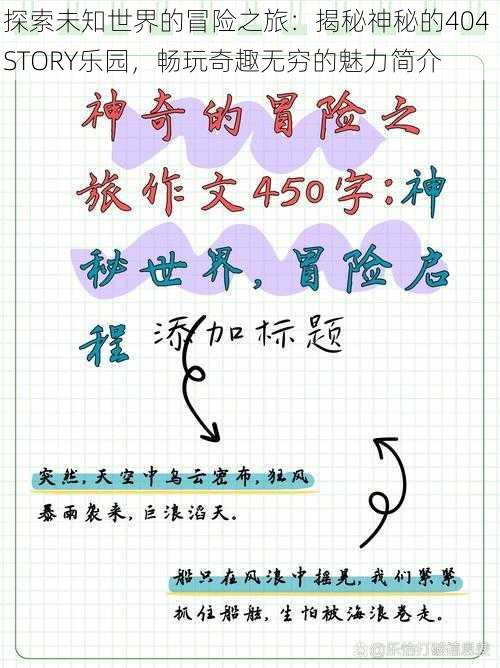 探索未知世界的冒险之旅：揭秘神秘的404
STORY乐园，畅玩奇趣无穷的魅力简介
神奇的冒险之
旅作文450字:神
秘世界,冒险启
程 添加标题
突然,天空中乌云密布,狂风
暴雨袭来,巨浪滔天。
船只在风浪中摇晃,我们紧紧
抓住船舷,生怕被海浪卷走。